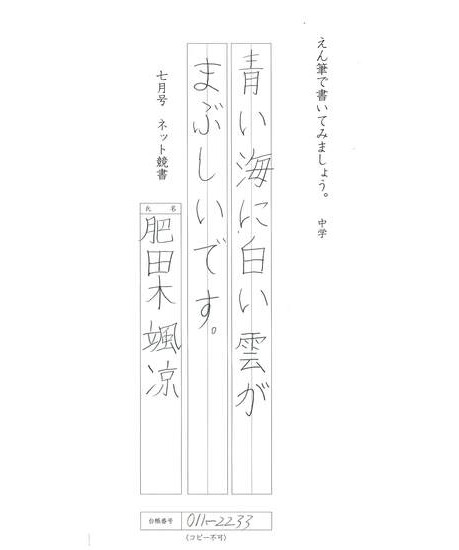 えん筆で書いてみましょう。 中学
青い海に白い雲が
まぶしいです。
七月号 ネット競書
氏名
肥田木 颯凉
台帳番号 011-2233
(コピー不可)